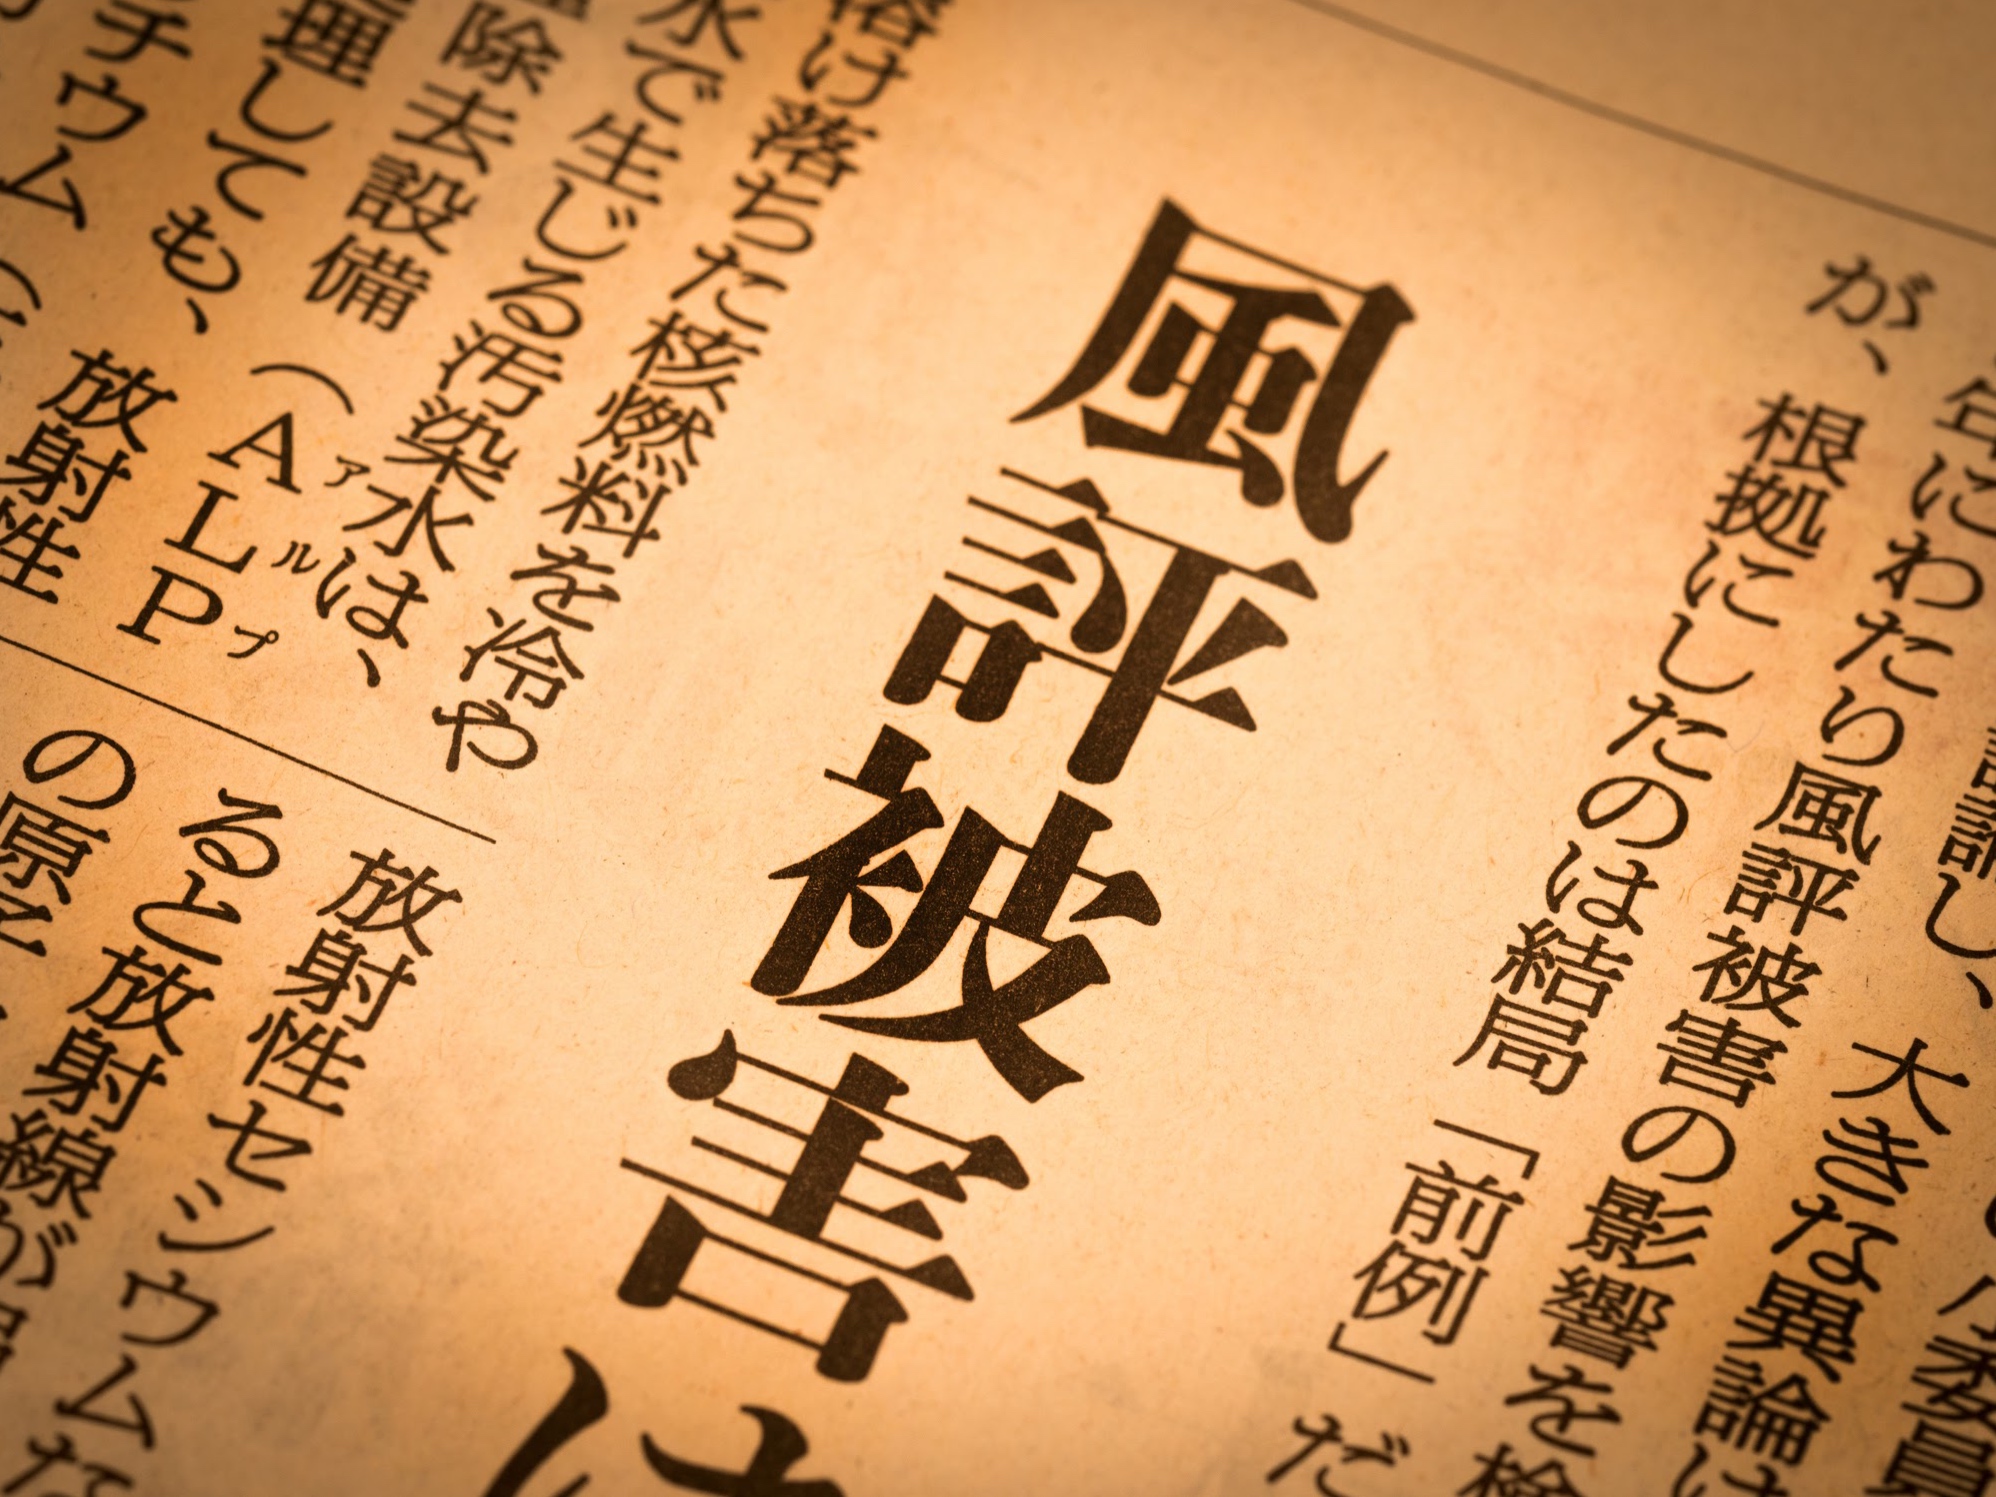 小委員
し、大きな異論は
年にわたり風評被害の影響を検
が、根拠にしたのは結局「前例」だ
風評被害は
溶け落ちた核燃料を冷や
水で生じる汚染水は、
除去設備(ALP
アルプ
理しても、放射性
チウム(
放射性セシウムな
ると放射線が
の原子